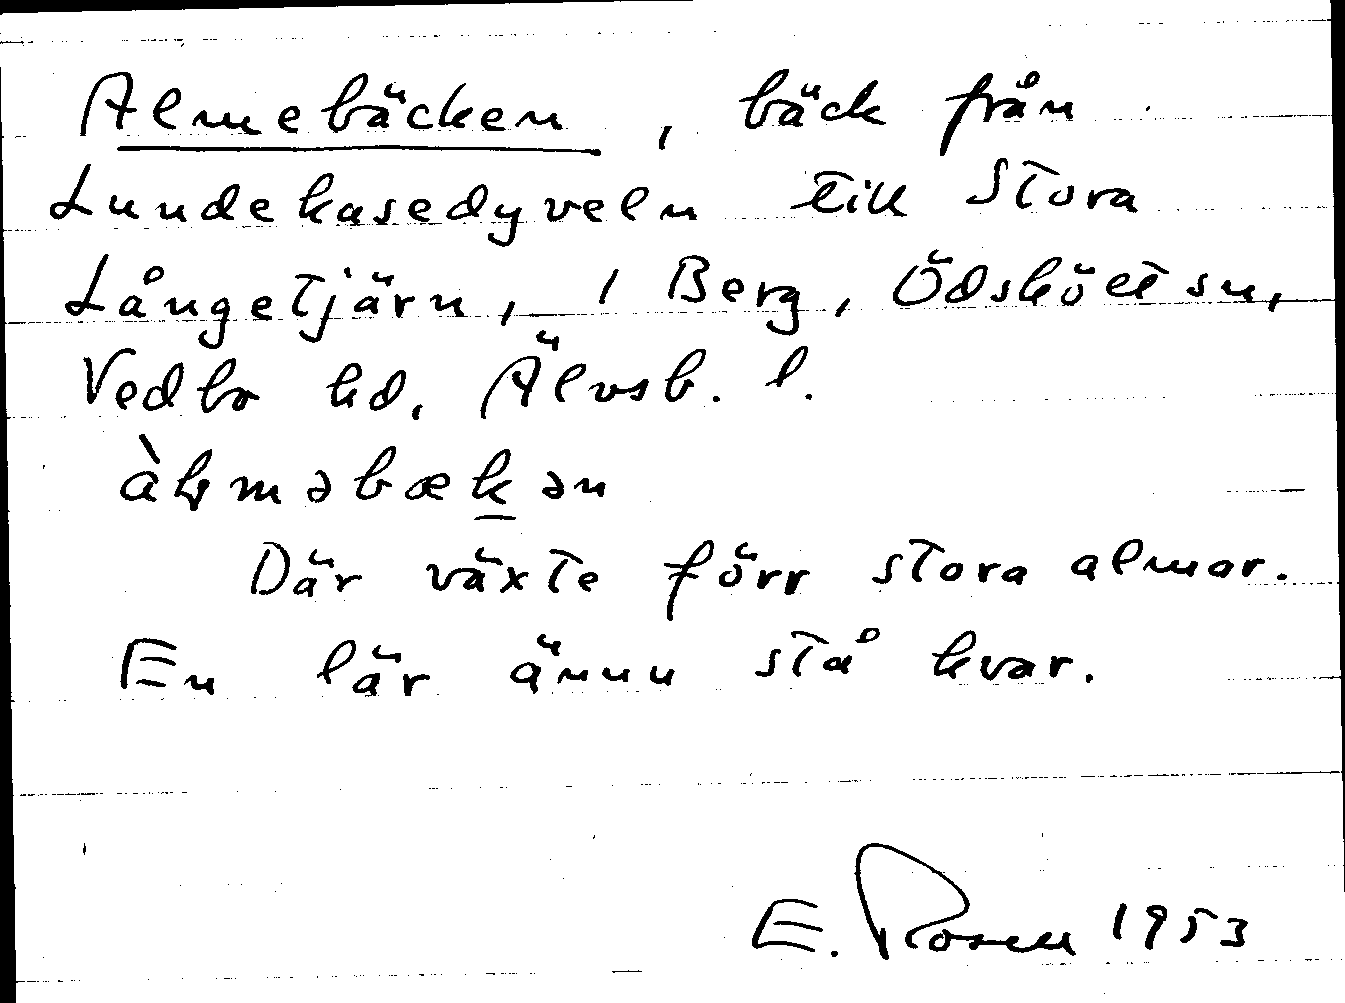 Almebäcken, bäck från
Lundekasedyveln till Stora
Långetjärn, 1 Berg, Ödskölt sn,
Vedbo hd, Älvsb. l.
àɫməbækən
Där växte förr stora almar.
En lär ännu stå kvar.
E. Rosen 1953